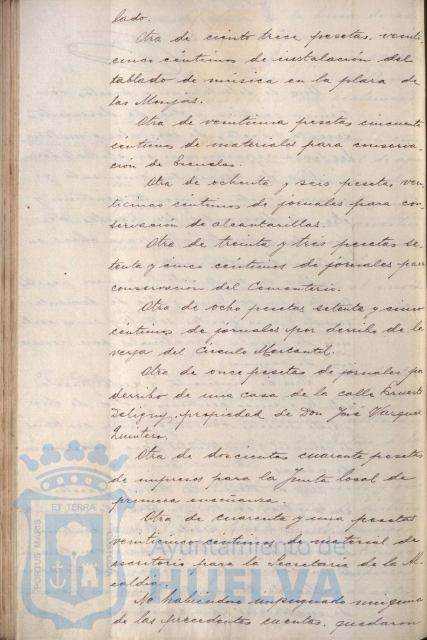 lado.
Otra de ciento trece pesetas, veinti-
cinco céntimos de instalación del
tablado de música en la plaza de
las Monjas.
Otra de veintiuna pesetas cincuenta
céntimos de materiales para conserva-
ción de Escuelas.
Otra de ochenta y seis pesetas, vein-
ticinco céntimos de jornales para con-
servación de alcantarillas.
Otra de treinta y tres pesetas se-
tenta y cinco céntimos de jornales para
conservación del Cementerio.
Otra de ocho pesetas setenta y cinco
céntimos de jornales por derribo de la
verja del Círculo Mercantil.
Otra de once pesetas de jornales por
derribo de una casa de la calle Ernesto
Deligny, propiedad de Don José Vázquez
Quintero.
Otra de doscientas cuarenta pesetas
de impresos para la Junta local de
primera enseñanza.
Otra de cuarenta y una pesetas
veinticinco céntimos de material de
escritorio para la Secretaría de la Al-
caldía.
No habiéndose impugnado ninguna
de las precedentes cuentas, quedaron
PORTUS MARIS ET TERRÆ CUSTODIA
Ayuntamiento de
HUELVA